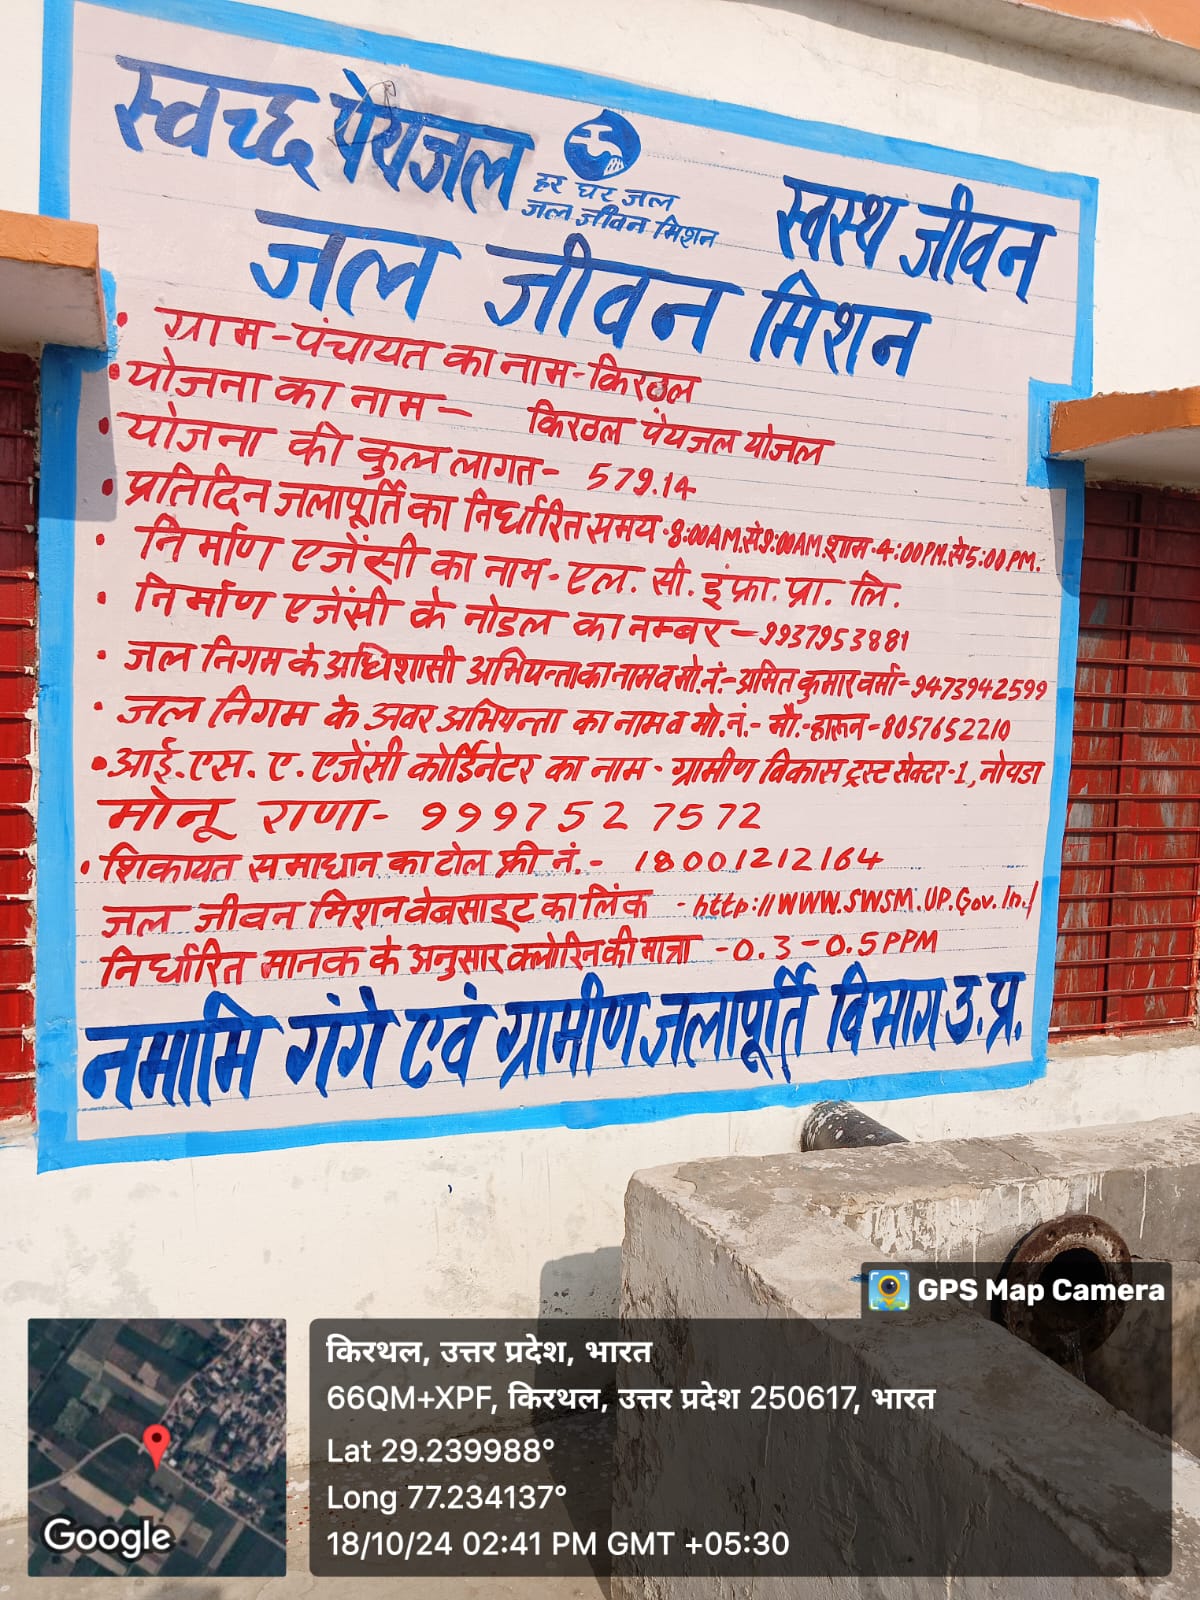 स्वच्छ पेयजल
हर घर जल
जल जीवन मिशन
स्वस्थ जीवन
जल जीवन मिशन
• ग्राम-पंचायत का नाम-किरठल
• योजना का नाम- किरठल पेयजल योजल
• योजना की कुल लागत- 579.14
• प्रतिदिन जलापूर्ति का निर्धारित समय-8:00AM.से9:00AM.शाम-4:00PM.से5:00PM.
• निर्माण एजेंसी का नाम-एल. सी. इंफ्रा. प्रा. लि.
• निर्माण एजेंसी के नोडल का नम्बर-9937953881
• जल निगम के अधिशासी अभियन्ता का नाम व मो.नं.-अमित कुमार वर्मा-9473942599
• जल निगम के अवर अभियन्ता का नाम व मो.नं.- मौ.-हारून-8057652210
• आई.एस. ए. एजेंसी कोर्डिनेटर का नाम - ग्रामीण विकास ट्रस्ट सेक्टर-1, नोयडा
मोनू राणा- 9997527572
• शिकायत समाधान का टोल फ्री नं.- 18001212164
जल जीवन मिशन वेबसाइट का लिंक - http://WWW.SWSM.UP.Gov.In./
निर्धारित मानक के अनुसार क्लोरिन की मात्रा -0.3-0.5PPM
नमामि गंगे एवं ग्रामीण जलापूर्ति विभाग उ.प्र.
GPS Map Camera
किरथल, उत्तर प्रदेश, भारत
66QM+XPF, किरथल, उत्तर प्रदेश 250617, भारत
Lat 29.239988°
Long 77.234137°
18/10/24 02:41 PM GMT +05:30
Google